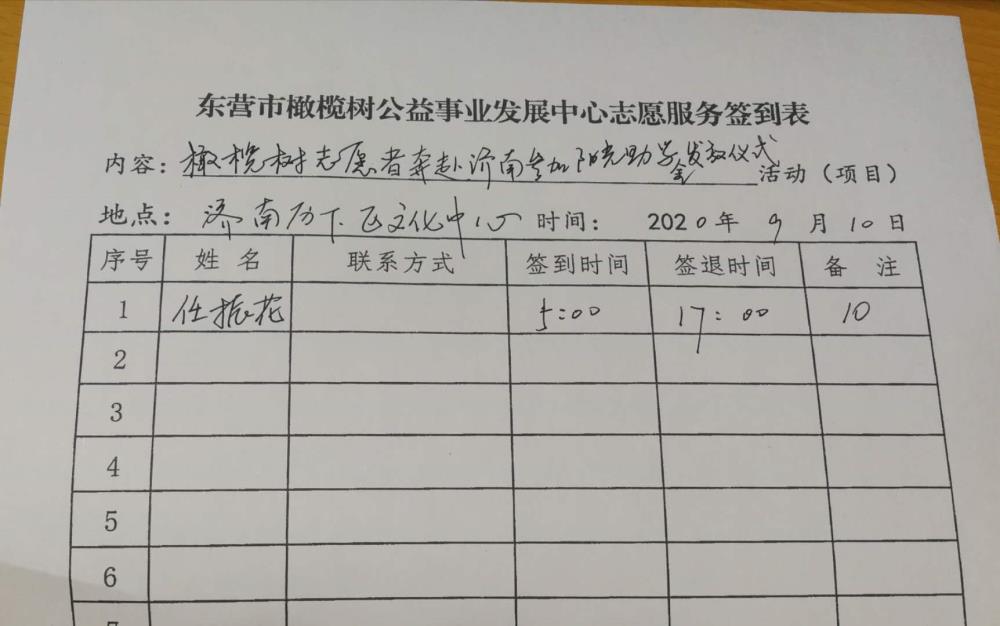 东营市橄榄树公益事业发展中心志愿服务签到表
内容：橄榄树志愿者奔赴济南参加阳光助学金发放仪式活动（项目）
地点：济南历下区文化中心 时间：2020年9月10日
序号 姓名 联系方式 签到时间 签退时间 备注
1 任振花 5:00 17:00 10
2
3
4
5
6
7